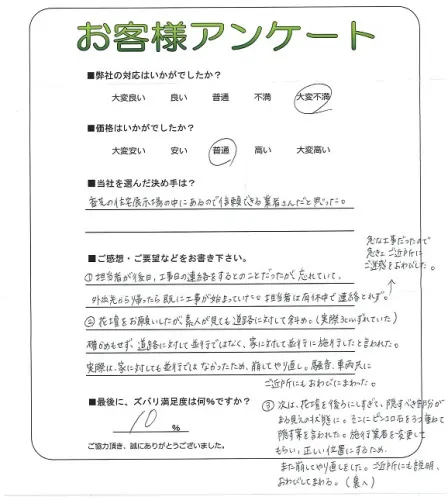 お客様アンケート
■弊社の対応はいかがでしたか?
大変良い 良い 普通 不満 大変不満
■価格はいかがでしたか?
大変安い 安い 普通 高い 大変高い
■当社を選んだ決め手は?
の住宅展示場の中にあるので信頼できる業者さんだと思った。
■ご感想・ご要望などをお書き下さい。
急な工事だったので
急きょご近所に
ご迷惑をおわびした。
①担当者が後日、工事日の連絡をするとのことだったが、忘れていて、
外出先から帰ったら既に工事が始まっていた。担当者は有休中で連絡とれず。
②花壇をお願いしたが、素人が見ても道路に対して斜め。(実際3cmずれていた)
確かめもせず、道路に対して並行ではなく、家に対して並行に施行したと言われた。
実際は、家に対しても並行ではなかったため、崩してやり直し。騒音、車両共に
ご近所にもおわびにまわった。
■最後に、ズバリ満足度は何%ですか?
10 %
ご協力頂き、誠にありがとうございました。
③次は、花壇を後ろにしすぎて、隠すべき部分が
まる見えの状態に。そこにピンコロ石をうち重ねて
隠す案を言われた。施行業者を変更して
もらい、正しい位置にするため、
また崩してやり直しをした。ご近所にも説明、
おわびしてまわる。(裏へ)